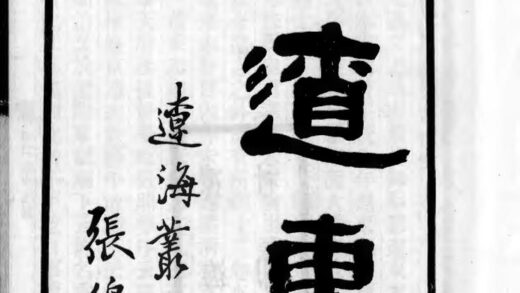 遼東
遼海叢
張